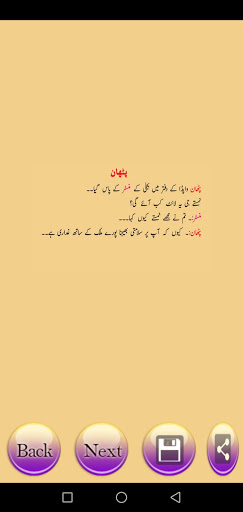 پٹھان
پٹھان واپڈا کے دفتر میں بجلی کے منسٹر کے پاس گیا۔۔
نمستے جی یہ لائٹ کب آئے گی؟
منسٹر:۔ تم نے مجھے نمستے کیوں کہا۔۔۔
پٹھان:۔ کیوں کہ آپ پر سلامتی بھیجنا پورے ملک کے ساتھ غداری ہے۔۔
Back Next